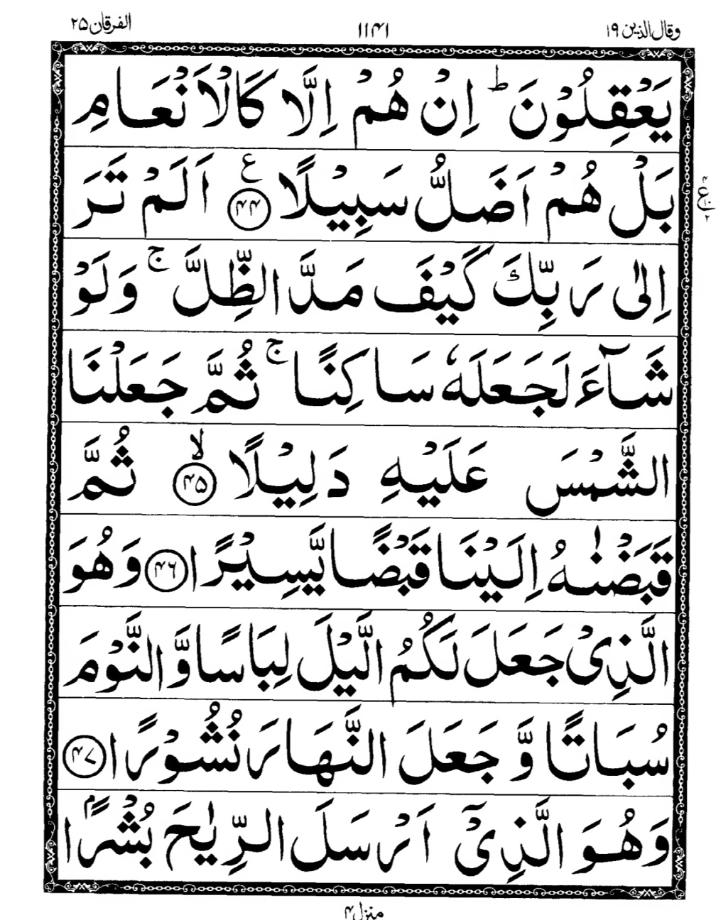 وقال الذین ۱۹ ۱۱۴۱ الفرقان ۲۵
يَعْقِلُوْنَ ؕ اِنْ هُمْ اِلَّا كَالْاَنْعَامِ
بَلْ هُمْ اَضَلُّ سَبِيْلًا ﴿۴۴﴾ ع اَلَمْ تَرَ
اِلٰى رَبِّكَ كَيْفَ مَدَّ الظِّلَّ ۚ وَلَوْ
شَآءَ لَجَعَلَهٗ سَاكِنًا ۚ ثُمَّ جَعَلْنَا
الشَّمْسَ عَلَيْهِ دَلِيْلًا ﴿۴۵﴾ ۙ ثُمَّ
قَبَضْنٰهُ اِلَيْنَا قَبْضًا يَّسِيْرًا ﴿۴۶﴾ وَهُوَ
الَّذِىْ جَعَلَ لَكُمُ الَّيْلَ لِبَاسًا وَّالنَّوْمَ
سُبَاتًا وَّ جَعَلَ النَّهَارَ نُشُوْرًا ﴿۴۷﴾
وَهُوَ الَّذِىْۤ اَرْسَلَ الرِّيٰحَ بُشْرًاۢ
منزل ۴